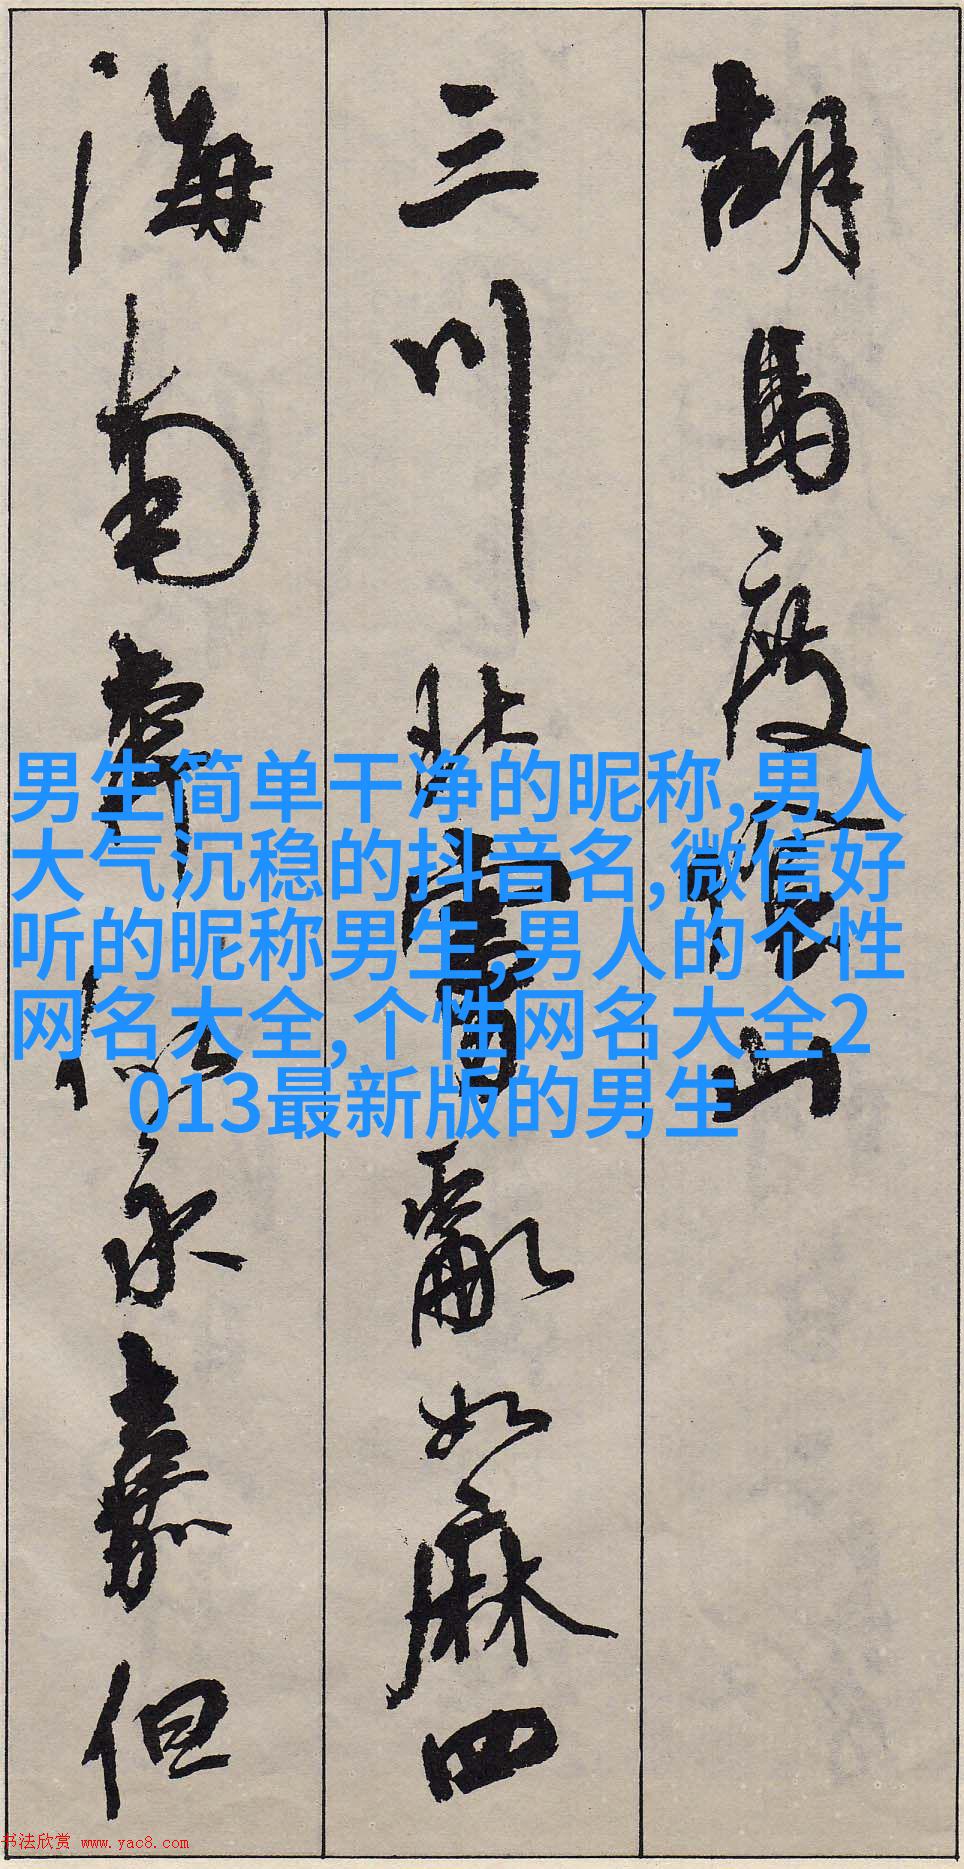 胡馬度陰山
三川北虜亂如麻四
海南奔似永嘉但
男生简单干净的昵称,男人
大气沉稳的抖音名,微信好
听的昵称男生,男人的个性
网名大全,个性网名大全2
013最新版的男生
书法欣赏 www.yac8.com